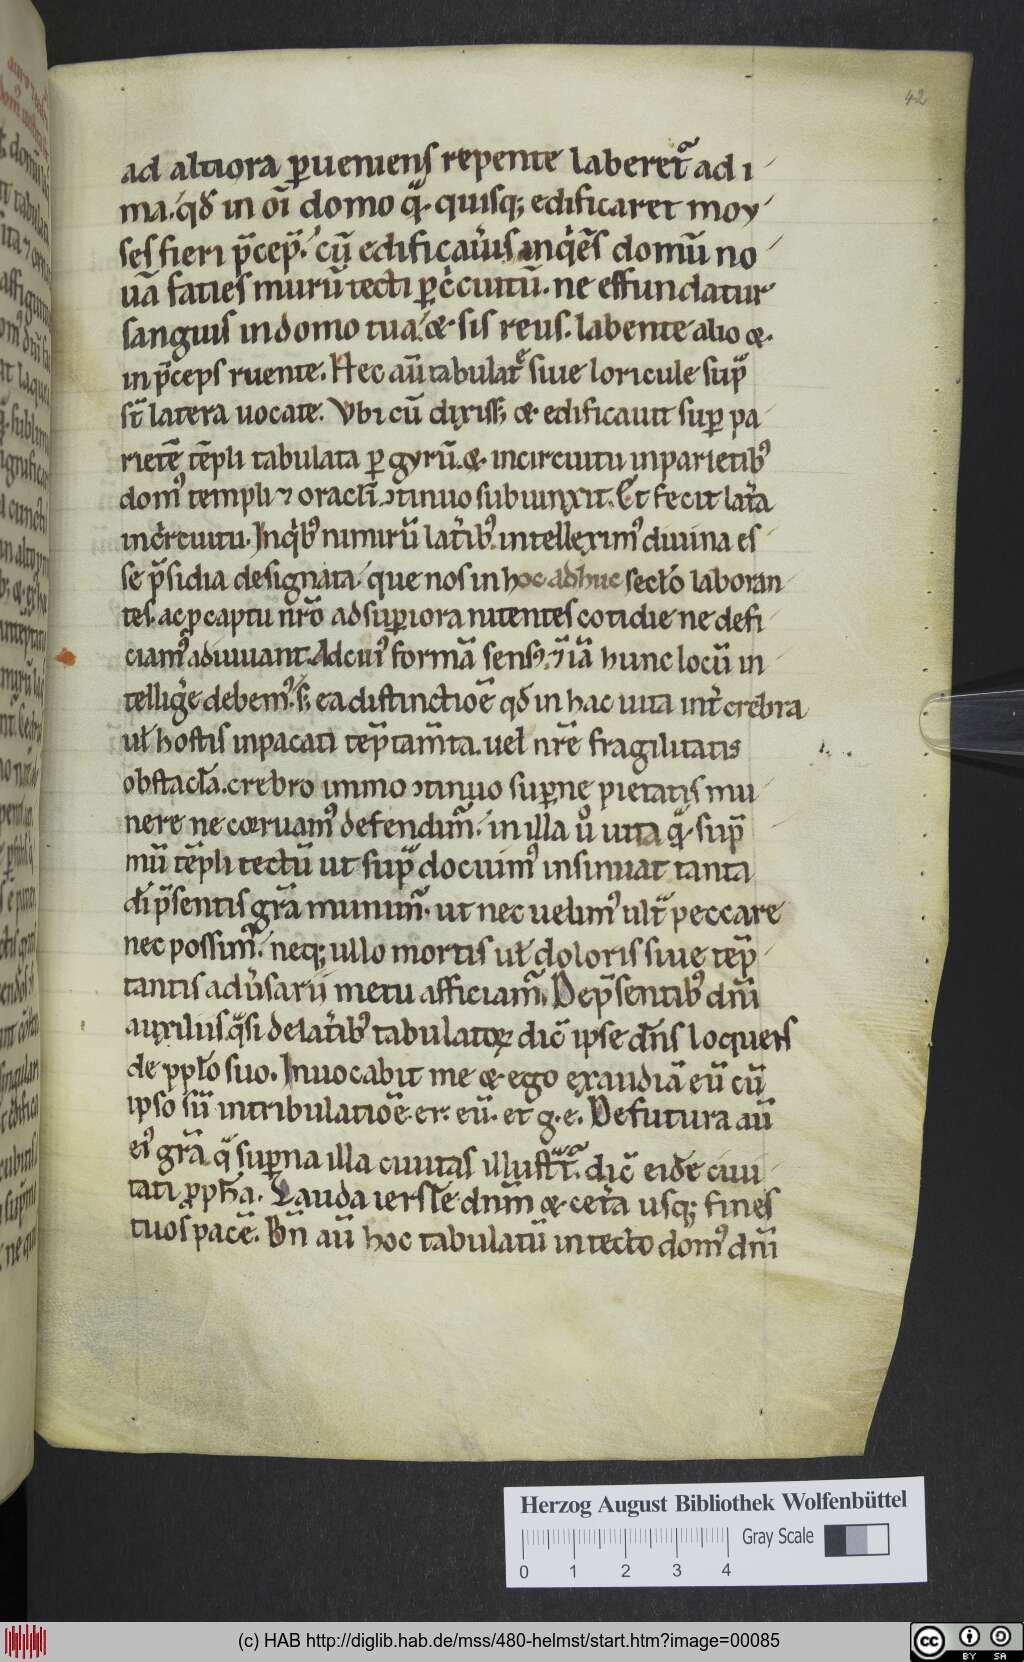 42
ad altiora ꝑueniens repente laberet᷑ ad i
ma. qđ in oi̅ domo q̅. quisq; edificaret moy
ses fieri p̅cep̅. cu̅ edificau̓is inq̓es̅ domu̅ no
ua̅ faties muru̅ tecti ꝑ c̓cuitu̅. ne effundatur
sanguis in domo tua. & sis reus. labente alio &
in p̅ceps ruente. Hec au̅ tabulat siue loricule sup̅
st̅ latera uocate. Vbi cu̅ dixiss; & edificauit suꝑ pa
riete̅ te̅pli tabulata ꝑ gyru̅. & in circuitu in parietibꝰ
domꝰ templi ⁊ oracl̅i ꝯtinuo subiunxit. Et fecit lat̓a
in c̓rcuitu. In q̓bꝰ nimiru̅ lat̓ibꝰ intelleximꝰ diuina es
se p̅sidia designata que nos in hoc adhuc scl̅o laboran
tes. ac p captu nr̅o ad suꝑiora nitentes cotidie ne defi
ciamꝰ adiuuant. Ad cuiꝰ forma̅ sens; ⁊ ia̅ hunc locu̅ in
tellig̓e debemꝰ. s; ea distinctioe̅ qđ in hac uita int̓ crebra
ul̅ hostis inpacati te̅ptam̅ta. uel nr̅e fragilitatis
obstacl̅a. crebro immo ꝯtinuo suꝑne pietatis mu
nere ne corruamꝰ defendim᷑. in illa u̓ uita q̅ sup̅
mu̅ te̅pli tectu̅ ut sup̅ docuimꝰ insinuat tanta
di̅ p̅sentis gr̅a munim᷑. ut nec uelimꝰ ult̅ peccare
nec possimꝰ. neq; ullo mortis ul̅ doloris siue te̅p
tantis adu̓sarii metu afficiam᷑. De p̅sentibꝰ dn̅i
auxiliis q̅si de lat̓ibꝰ tabulatoꝝ dic̅ ipse dn̅s loquens
de ppl̅o suo. Inuocabit me & ego exaudia̅ eu̅ cu̅
ipso su̅ in tribulatioe̅. er. eu̅. et g. e. De futura au̅
eiꝰ gr̅a q̅ suꝑna illa ciuitas illust̅t᷑. dic̅ eide̅ ciui
tati ꝓph̅a. Lauda iersl̅e dnm̅ & cet̓a usq; fines
tuos pace̅. Bn̅ au̅ hoc tabulatu̅ in tecto domꝰ dn̅i
Herzog August Bibliothek Wolfenbüttel
Gray Scale
0 1 2 3 4
(c) HAB http://diglib.hab.de/mss/480-helmst/start.htm?image=00085
cc BY SA